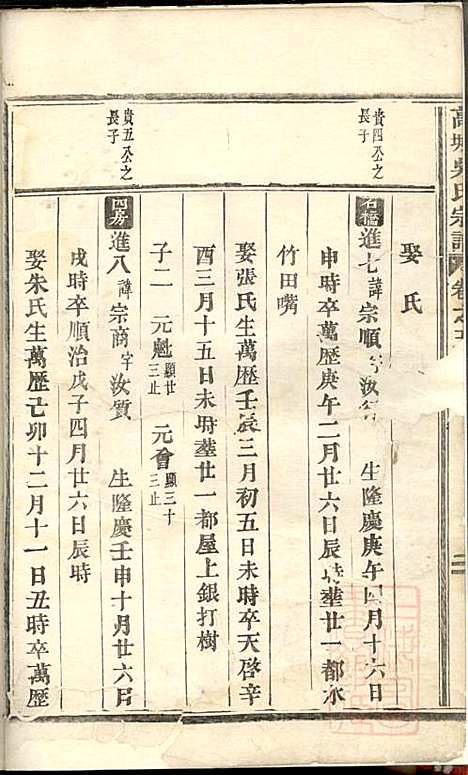 吳氏宗譜
娶 氏
貴四公之
長子
石橋 進七 諱宗順 字汝 生隆慶庚午四月十六日
申時卒萬歷庚午二月廿六日辰時塟廿一都水
竹田嘴
娶張氏生萬歷壬辰三月初五日未時卒天啓辛
酉三月十五日未時塟廿一都屋上銀打樹
子二 元魁 顯廿三止 元會 顯三十三止
貴五公之
長子
進八 諱宗商 字汝質 生隆慶壬申十月廿六日
戌時卒順治戊子四月廿六日辰時
娶朱氏生萬歷己卯十二月十一日丑時卒萬歷